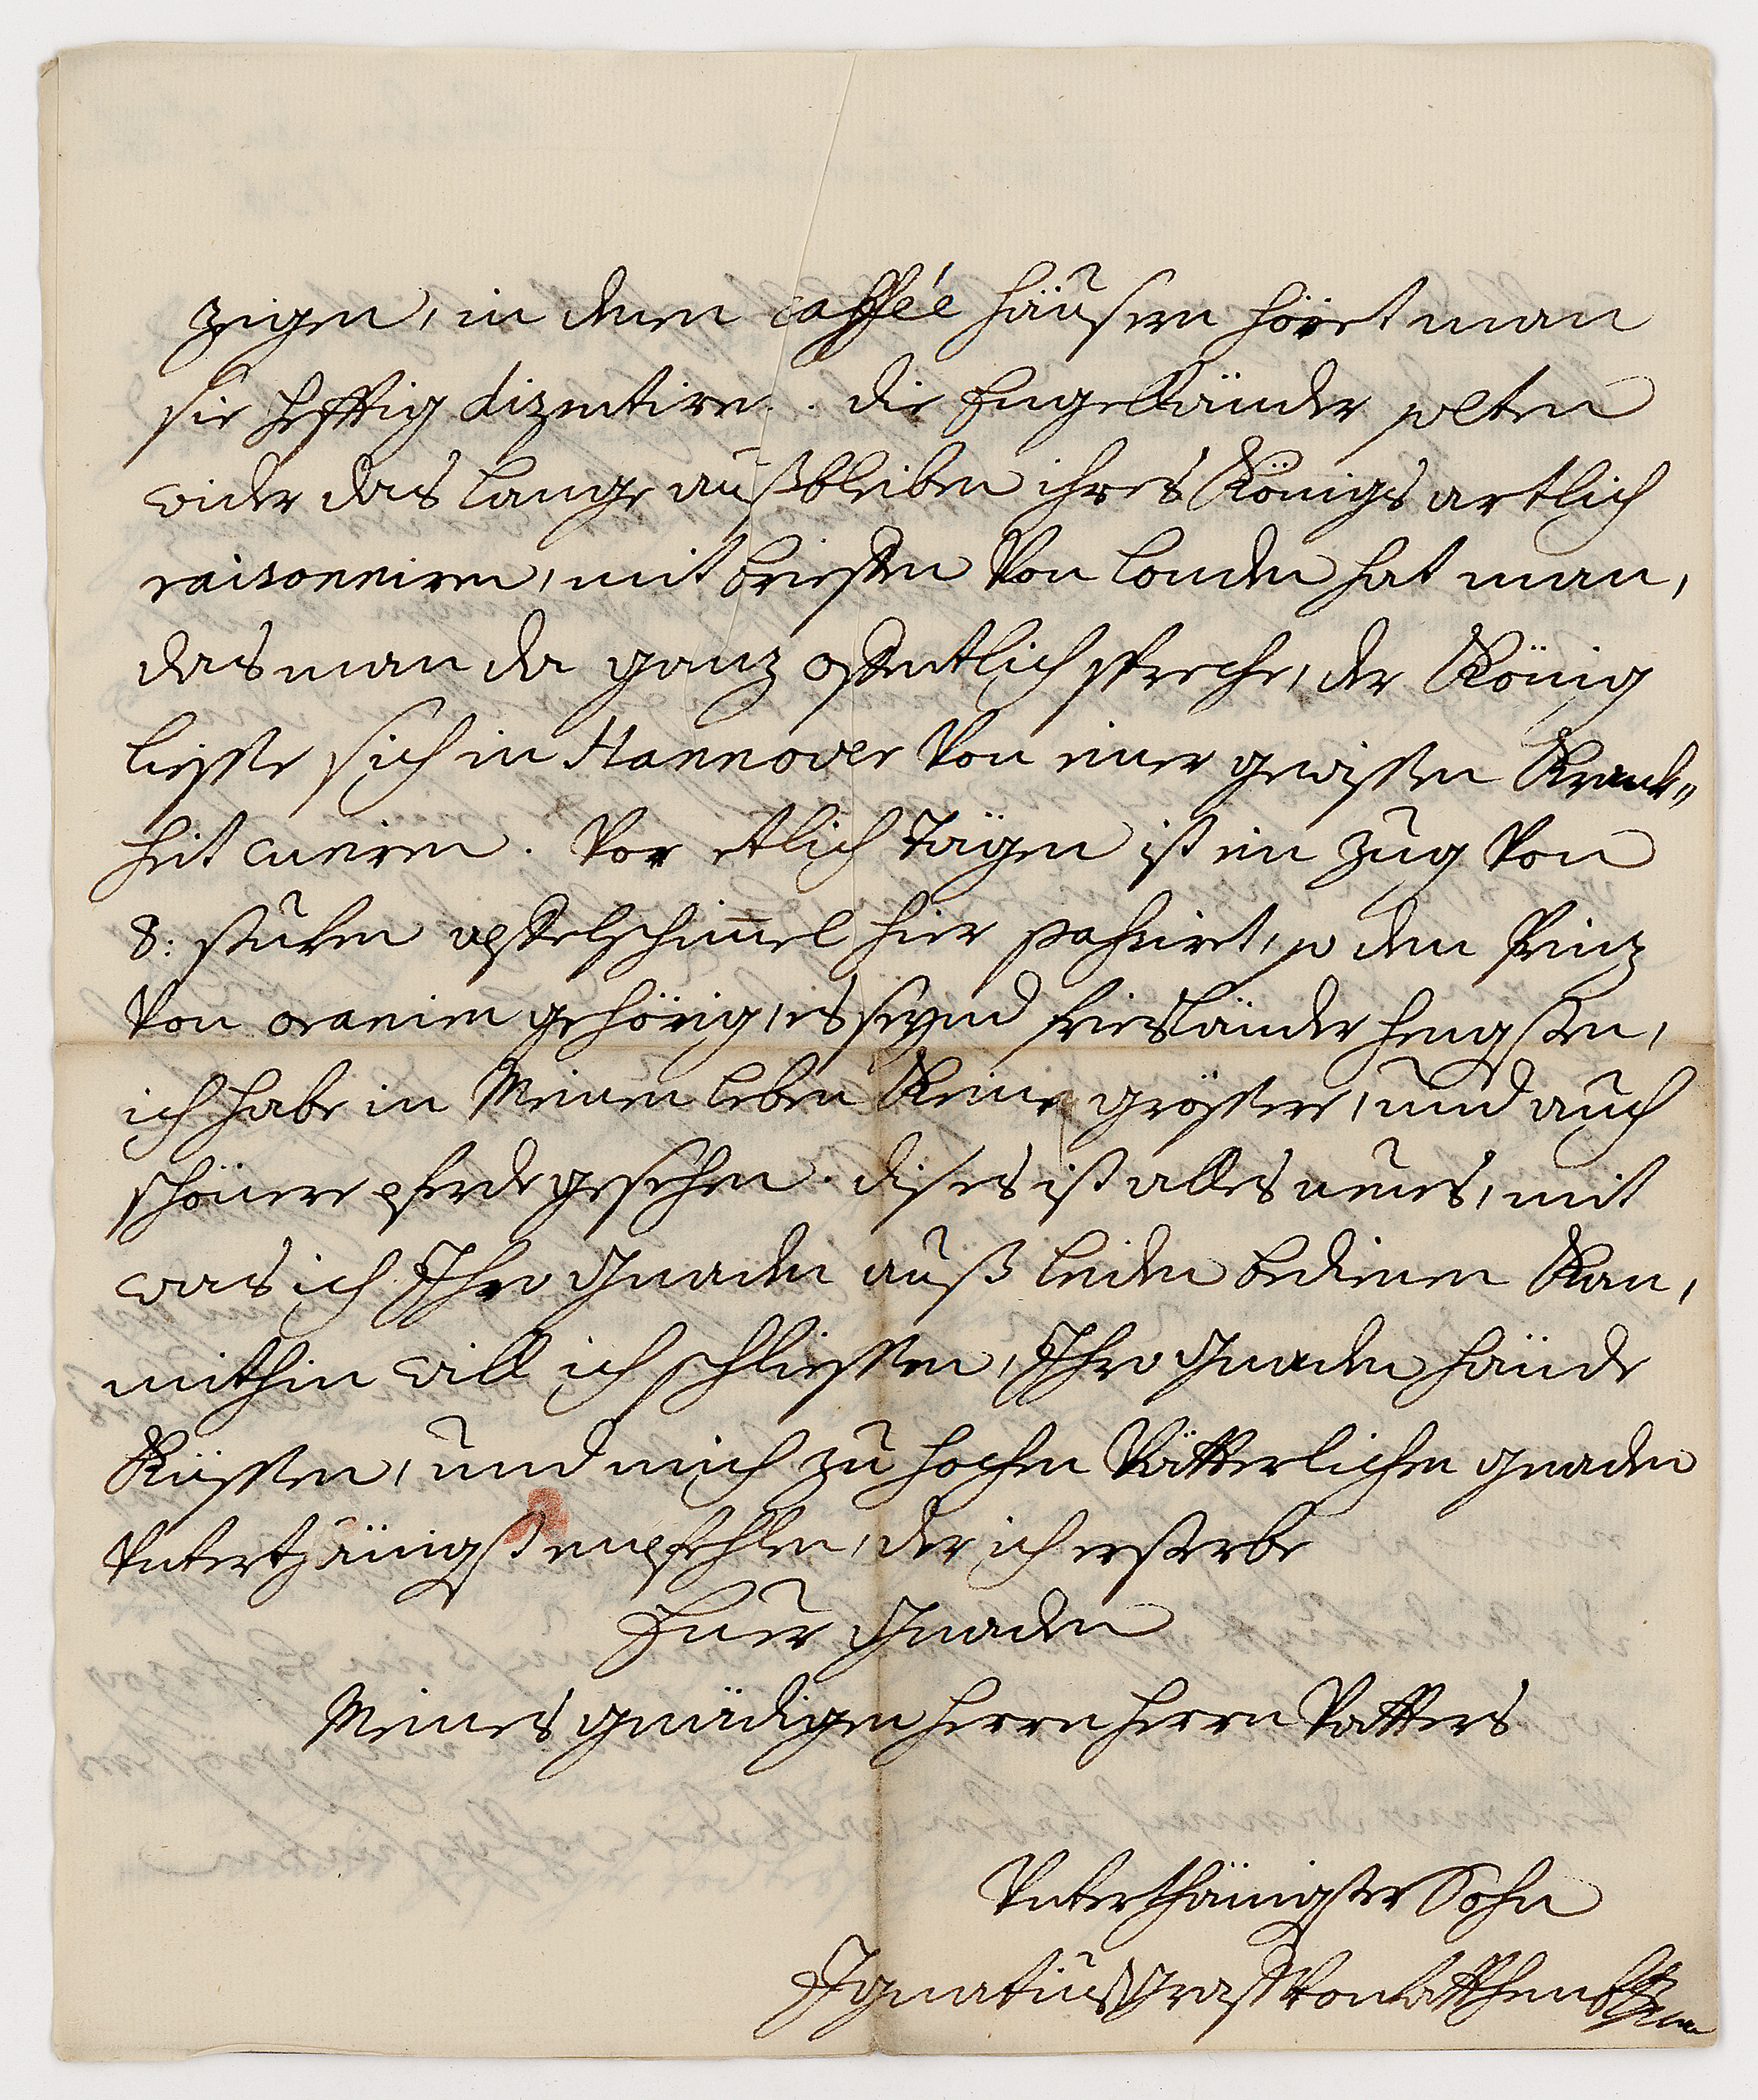 zeigen, in denen caffée häusern höret man
sie hefftig disentiren. die Engelländer solten
wider das lange außbleiben ihres Königs artlich
raisonniren, mit brieffen von Londen hat man,
das man da ganz offentlich spreche, der König
liesse sich in Hannover von einer gewissen Krank„
heit curiren. Vor etlich Tägen ist ein Zug von
8: stuken apffelschim̅el hier passiret, so dem Prinz
von oranien gehörig, es seynd friesländer hengsten,
ich habe in Meinen leben Keine grössere, und auch
schönere pferde gesehen. dises ist alles neues, mit
was ich Ihro Gnaden auß leiden bedienen Kan,
mithin will ich schliessen, Ihro Gnaden hände
Küssen, und mich zu hochen Vätterlichen gnaden
Unterthänigst empfehlen, der ich ersterbe
Euer Gnaden
Meines gnädigen herrn herrn Vatters
Unterthänigster Sohn
Ignatius Graff von